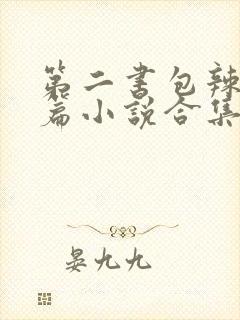 第二书包辣
篇小说合集
晏九九